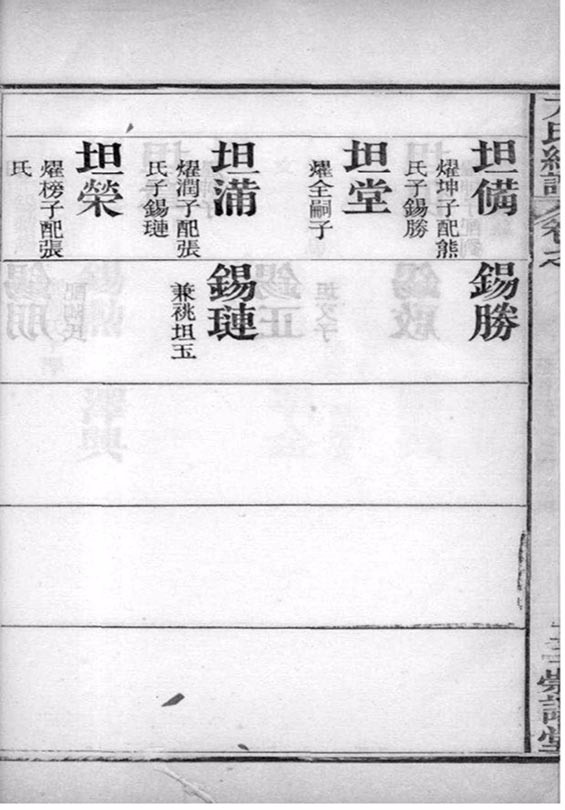 坦備
燿坤子配熊
氏子錫勝
坦堂
燿全嗣子
坦蒲
燿潤子配張
氏子錫璉
坦榮
燿榜子配張
氏
錫勝
錫璉
兼祧坦玉